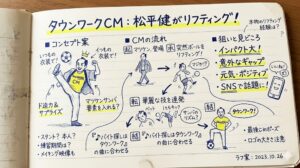 タウンワークCM：松平健がリフティング！
本物のリフティング経験は？
■コンセプト案
いつもの衣装で！
いつもの衣装で！
ド迫力&サプライズ
マツケンサンバ要素を入れる？
・スタント？本人？
・練習期間は？
・メイキング映像も
■CMの流れ
起
マツケン、登場
承
突然ボールをリフティング！
マジか！？
転
華麗な技を連発
結
『バイト探しはタウンワーク』の曲に合わせる
『バイト探しはタウンワーク』の曲に合わせる
■狙いと見どころ
・インパクト大！
・意外なギャップ
・元気・ポジティブ
・SNSで話題に！
タウンワーク！
・最後こポーズ
・ロゴの大きさ注意
2023.10.26